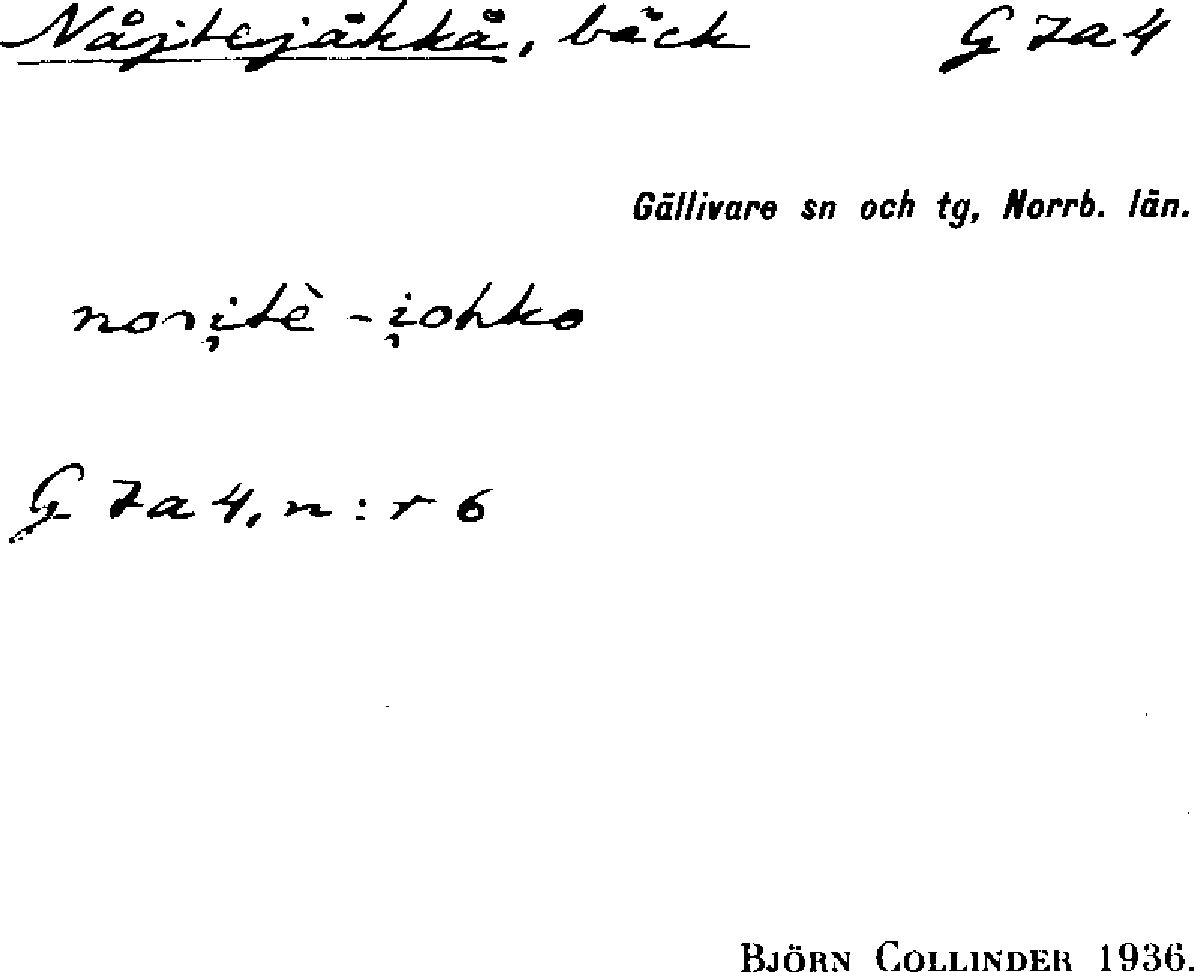 Nåjtejåkkå, bäck G 7a4
Gällivare sn och tg, Norrb. län.
G 7a 4, n:r 6
BJÖRN COLLINDER 1936.